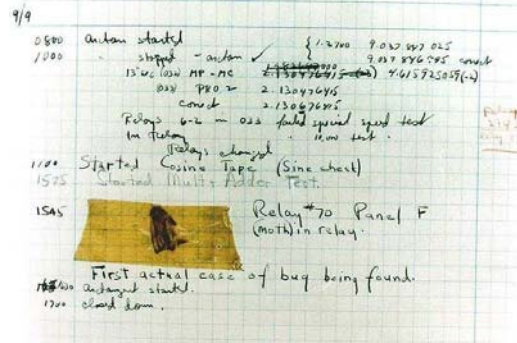 9/9
0800 antan started
1000 " stopped - antan ✓ { 1.2700 9.037 847 025
9.037 846 995 correct
13"uc (032) MP - MC 2.130476415 4.615925059(-2)
(033) PRO 2 2.130476415
correct 2.130676415
Relays 6-2 in 033 failed special speed test
in relay " 10.000 test .
Relays changed
1100 Started Cosine Tape (Sine check)
1525 Started Mult + Adder Test.
1545 Relay #70 Panel F
(moth) in relay.
First actual case of bug being found.
1630 antangent started.
1700 closed down.